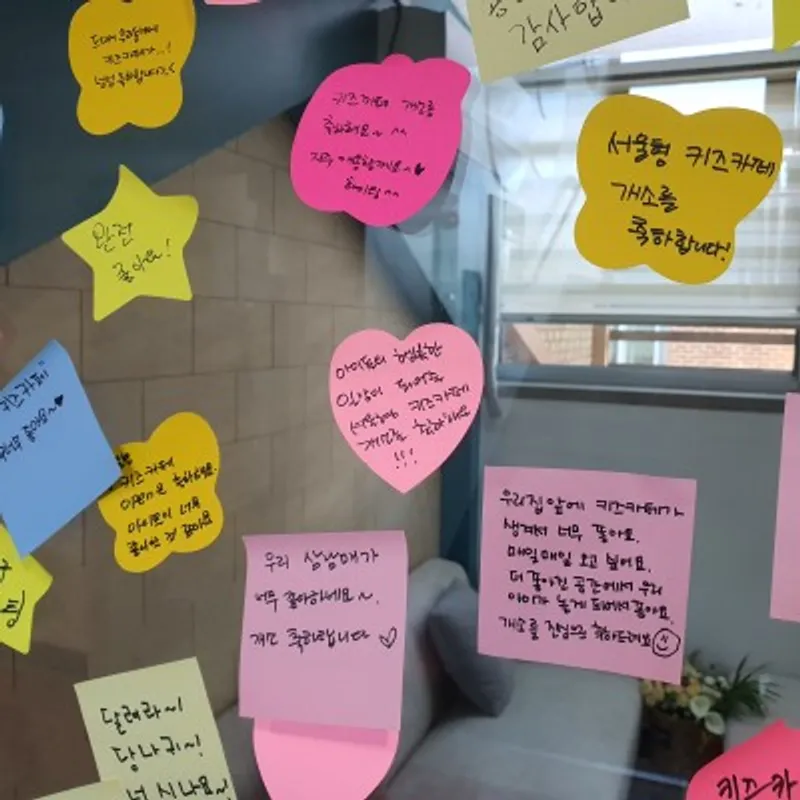 감사합
드디어 우리동네
키즈카페가..!
넘넘 축하합니다
키즈카페 개소를
축하해요~ ^^
자주 이용할게요~♥
서울형 키즈카페
개소를
축하합니다!
완전
좋아요!
아이들의 행복한
일상이 되어줄
서울형 키즈카페
개소를 축하해요
!!!
키즈카페
좋아요~♥
키즈카페
OPEN을 축하해요.
아이들이 너무
좋아할 것 같아요
우리 삼남매가
너무 좋아하네요~.
개소 축하합니다 ♡
우리집 앞에 키즈카페가
생겨서 너무 좋아요.
매일매일 오고 싶어요.
더 좋아진 공간에서 우리
아이가 놀게 되어서 좋아요.
개소를 진심으로 축하드려요
달려라~!
당나귀~!
넘 신나요~!
키즈카